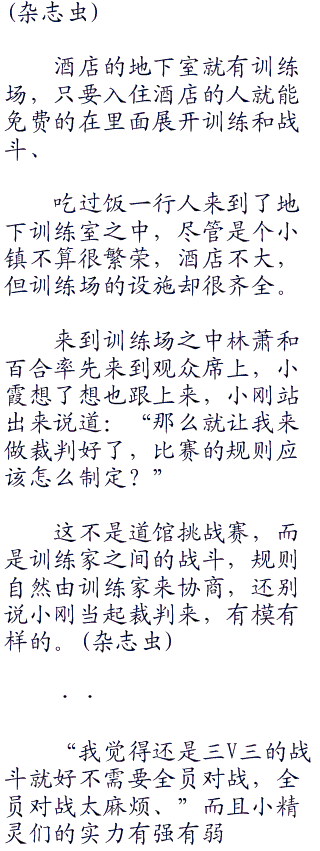 (杂志虫)
酒店的地下室就有训练
场，只要入住酒店的人就能
免费的在里面展开训练和战
斗、
吃过饭一行人来到了地
下训练室之中，尽管是个小
镇不算很繁荣，酒店不大，
但训练场的设施却很齐全。
来到训练场之中林萧和
百合率先来到观众席上，小
霞想了想也跟上来，小刚站
出来说道：“那么就让我来
做裁判好了，比赛的规则应
该怎么制定？”
这不是道馆挑战赛，而
是训练家之间的战斗，规则
自然由训练家来协商，还别
说小刚当起裁判来，有模有
样的。(杂志虫)
．．
“我觉得还是三V三的战
斗就好不需要全员对战，全
员对战太麻烦、”而且小精
灵们的实力有强有弱